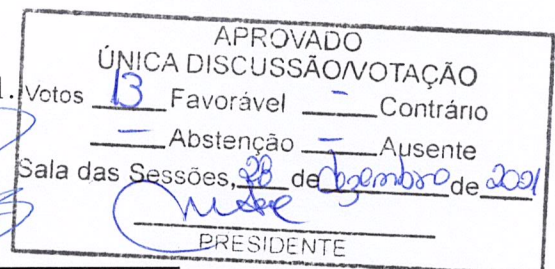 APROVADO
ÚNICA DISCUSSÃO/VOTAÇÃO
1. Votos 13 Favorável - Contrário
- Abstenção - Ausente
Sala das Sessões, 28 de dezembro de 2021
PRESIDENTE